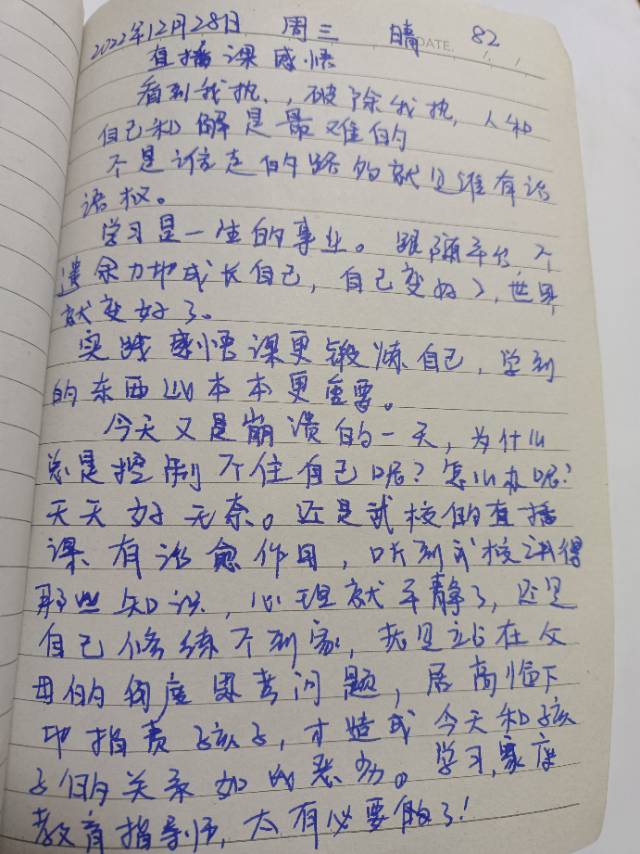 2022年12月28日 周三 晴 DATE. 82
直播课感悟
看到我执，破除我执，人和
自己和解是最难的
不是谁走的路多就是谁有话
语权。
学习是一生的事业。跟随平台，不
遗余力地成长自己，自己变好了，世界
就变好了。
实践感悟课更锻炼自己，学到
的东西比本本更重要。
今天又是崩溃的一天，为什么
总是控制不住自己呢？怎么办呢？
天天好无奈。还是武校的直播
课有治愈作用，听到武校讲得
那些知识，心理就平静了，还是
自己修练不到家，老是站在父
母的角度思考问题，居高临下
地指责孩子，才造成今天和孩
子们的关系如此恶劣。学习，家庭
教育指导师，太有必要的了！